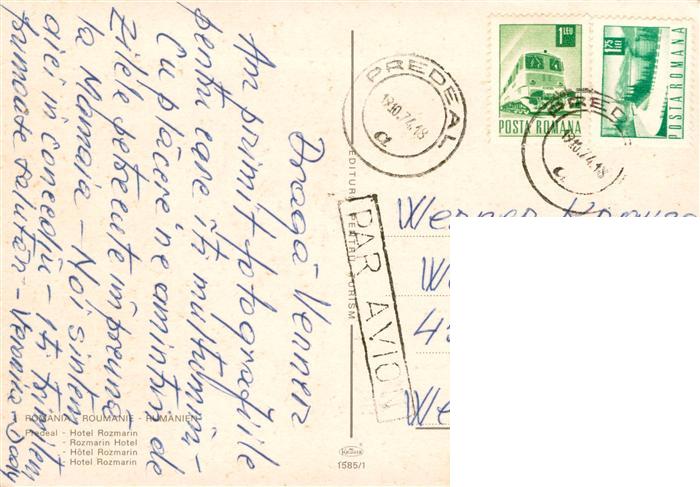 Dragă Werner
Am primit fotografiile
pentru care îți mulțumim-
Cu plăcere ne amintim de
zilele petrecute împreună
la Mamaia - Noi sîntem
aici în concediu - Iți trimitem
frumoase salutări - Veronia - Dody
ROMANIA - ROUMANIE - RUMÄNIEN
Predeal - Hotel Rozmarin
- Rozmarin Hotel
- Hôtel Rozmarin
- Hotel Rozmarin
EDITURA PENTRU TURISM
1585/1
PREDEAL
19.10.74.18
a
1 LEU
POSTA ROMANA
1,75 LEI
POSTA ROMANA
PREDE
19.10.74.18
a
PAR AVION
Werner
W
4
We